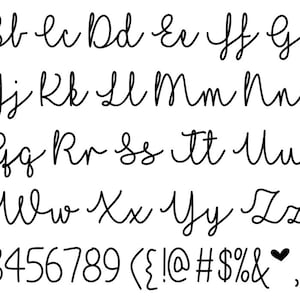 Bb Cc Dd Ee Ff G
Jj Kk Ll Mm Nn
Qq Rr Ss Tt Uu
Ww Xx Yy Zz
3456789 ({!@#$%&♥,